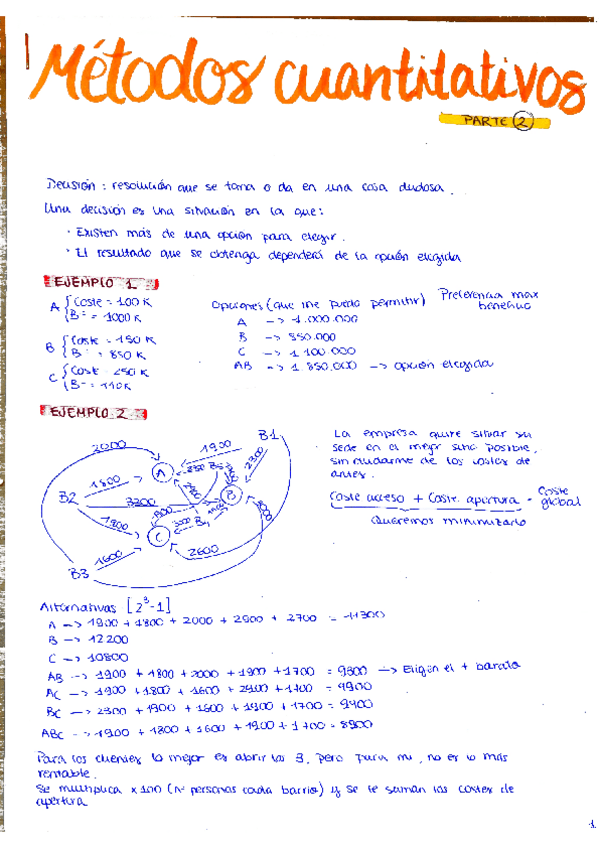 Métodos cuantitativos
PARTE 2
Decisión: resolución que se toma o da en una cosa dudosa.
Una decisión es una situación en la que:
· Existen más de una opción para elegir.
· El resultado que se obtenga dependerá de la opción elegida
EJEMPLO 1
A { Coste = 100 K
Bº = 1000 K
B { Coste = 150 K
Bº = 850 K
C { Coste = 250 K
Bº = 110K
Opciones (que me puedo permitir)
Preferencia max beneficio
A -> 1.000.000
B -> 850.000
C -> 1 100 000
AB -> 1 850.000 -> opción elegida
EJEMPLO 2
2000
1900
B1
1800
A
2300
B2
3200
B
1800
C
1600
2600
B3
La empresa quiere situar su
sede en el mejor sitio posible,
sin olvidarme de los costes de
antes.
Coste acceso + Coste apertura = Coste global
Queremos minimizarlo
Alternativas [2³-1]
A -> 1900 + 1800 + 2000 + 2900 + 2700 = 11300
B -> 12200
C -> 10800
AB -> 1900 + 1800 + 2000 + 1900 + 1700 = 9300 -> Eligen el + barato
AC -> 1900 + 1800 + 1600 + 2900 + 1700 = 9900
BC -> 2300 + 1900 + 1600 + 1900 + 1700 = 9400
ABC -> 1900 + 1800 + 1600 + 1900 + 1700 = 8900
Para los clientes lo mejor es abrir las 3, pero para mi, no es lo más
rentable.
Se multiplica x100 (nº personas cada barrio) y se le suman los costes de
apertura
1